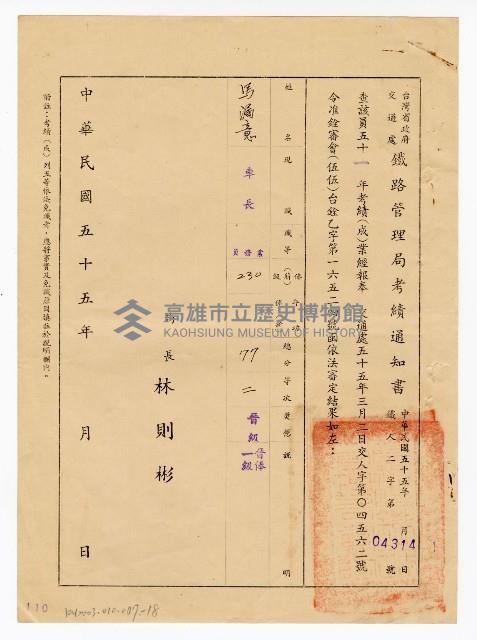 台灣省政府
交通處
鐵路管理局考績通知書
中華民國五十五年 月 日
鐵人二字第 號
04314
查該員五十一年考績(成)業經報奉 交通處五十五年三月二日交人字第〇四五六二號
令准銓審會(伍伍)台銓乙字第一六五二四號函依法審定結果如左：
姓名
現職
職等
總分
等次
獎懲
說明
馮滿意
車長
業務員
230
77
二
晉級
晉俸一級
長 林則彬
中華民國五十五年 月 日
附註：考績(成)列五等依法免職者，應將事實及免職原因填註於說明欄內。
高雄市立歷史博物館
KAOHSIUNG MUSEUM OF HISTORY
110